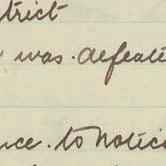 trict
was defeate
nce. to notice